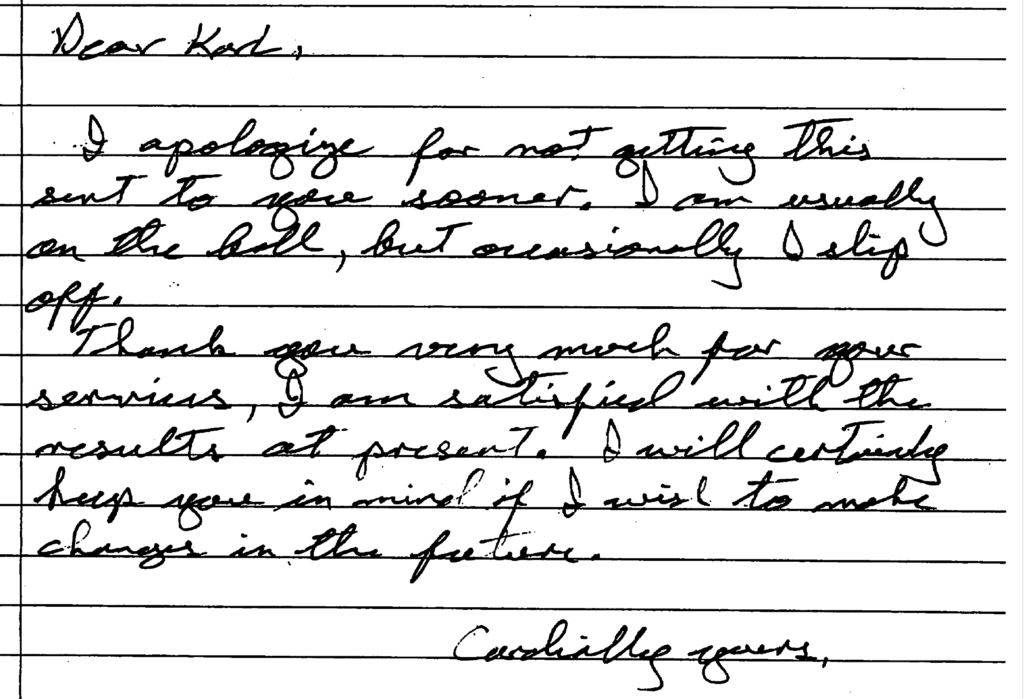 Dear Karl,
I apologize for not getting this
sent to you sooner. I am usually
on the ball, but occasionally I slip
off.
Thank you very much for your
services, I am satisfied with the
results at present. I will certainly
keep you in mind if I wish to make
changes in the future.
Cordially yours,